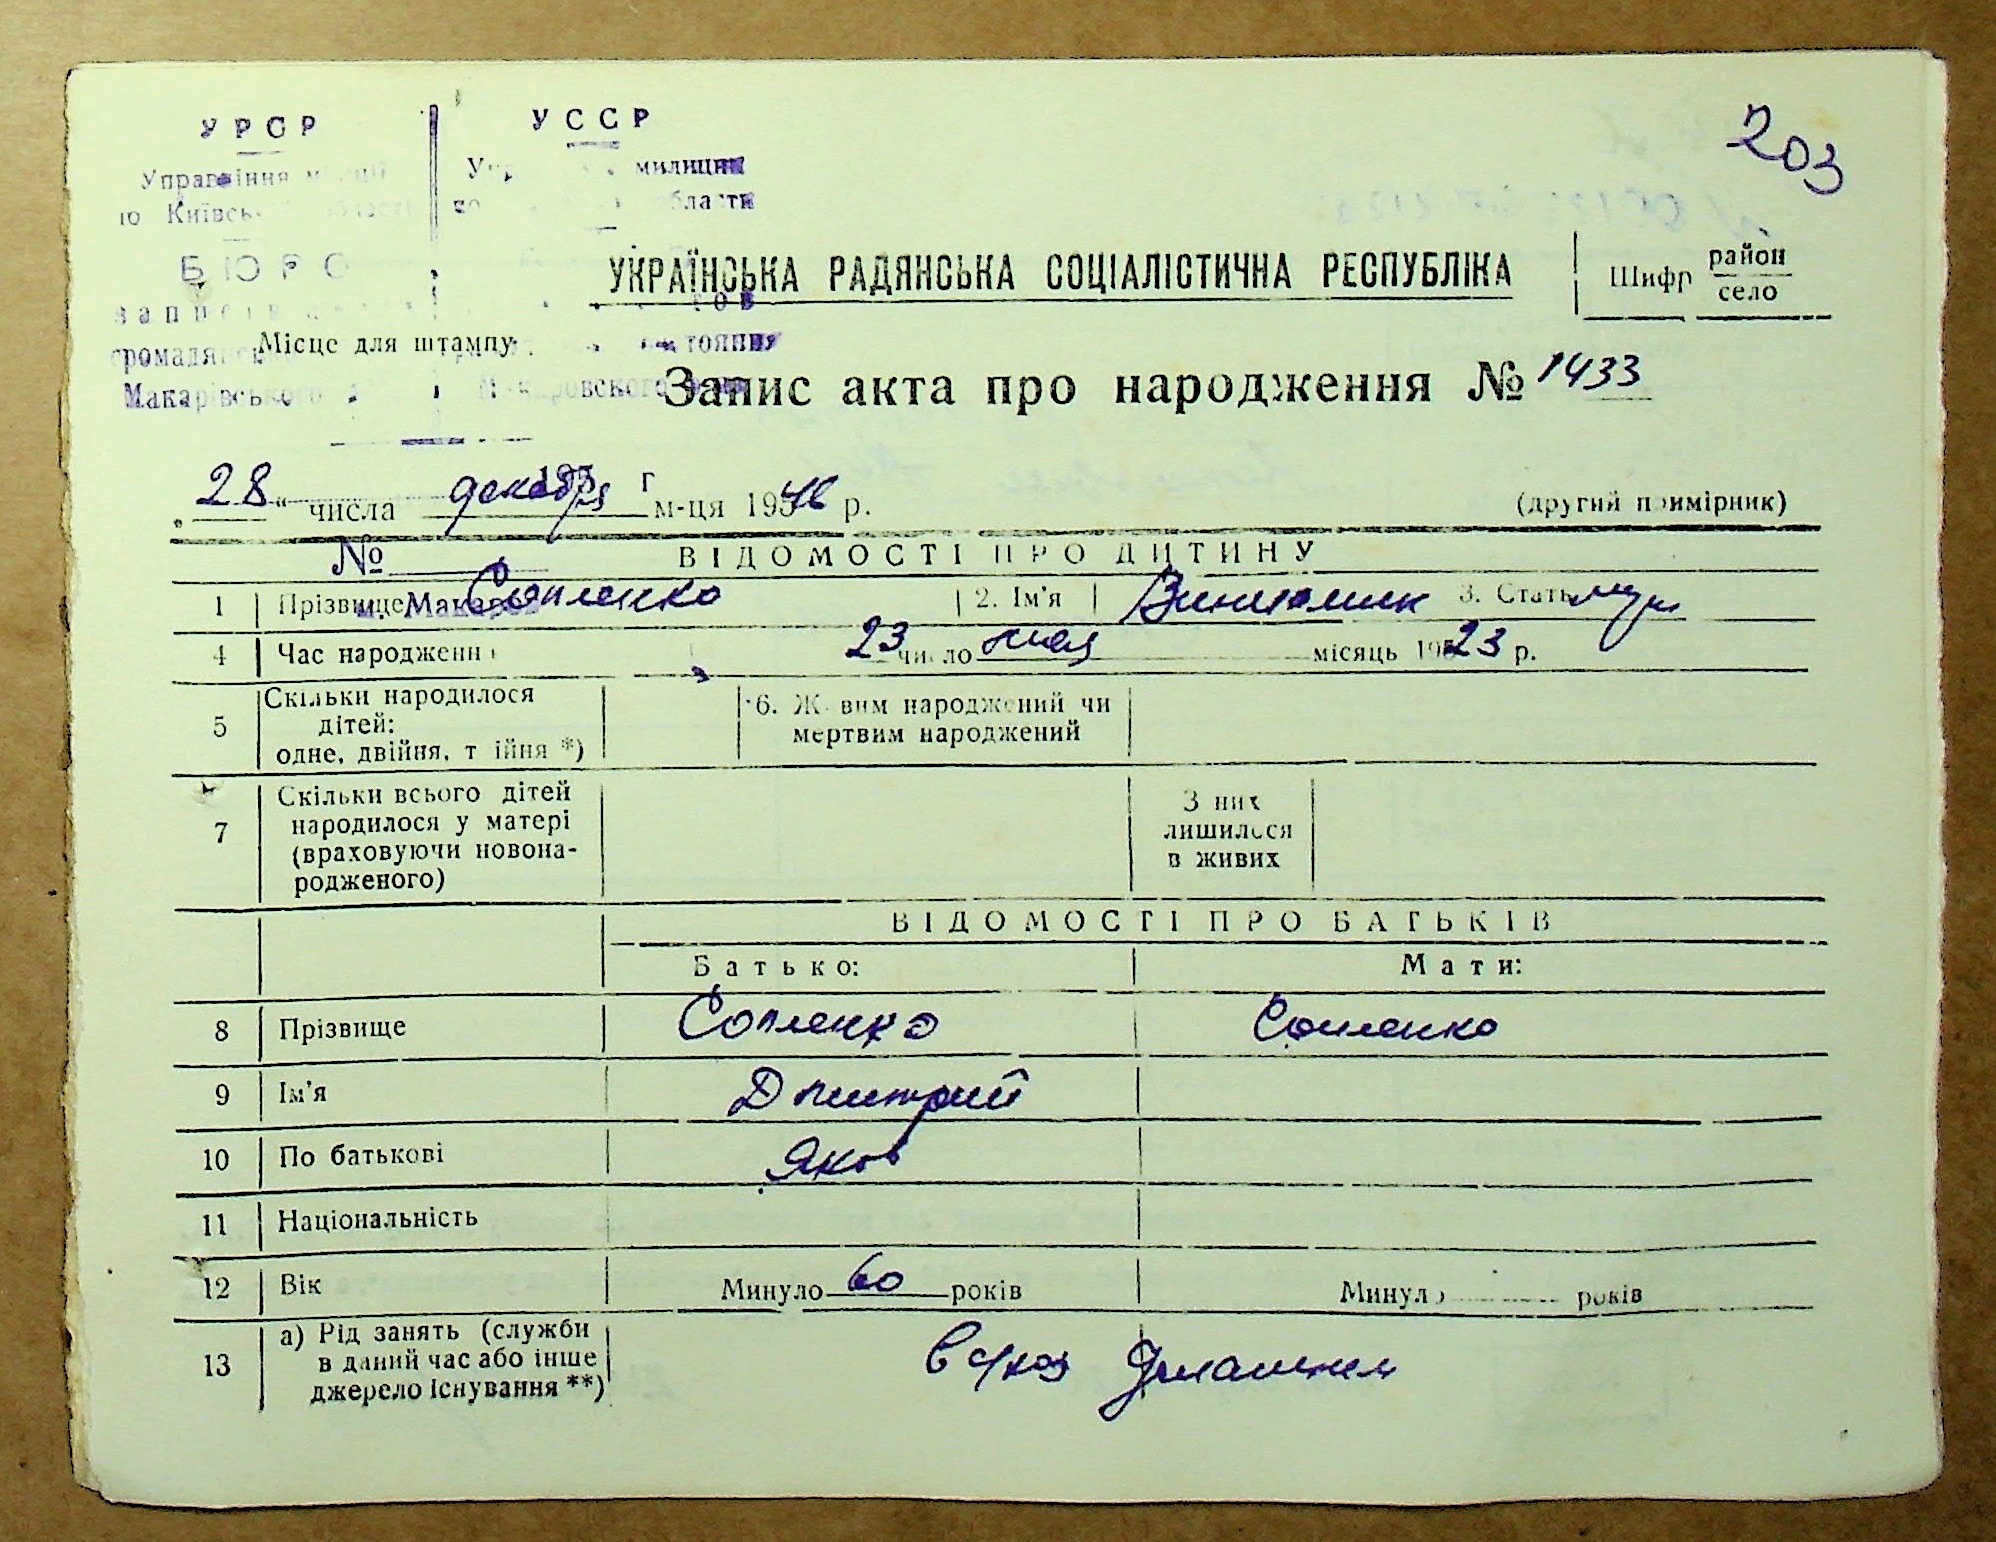 203
УРСР УССР
Управління міліції милиции
по Київськ області области
БЮРО
УКРАЇНСЬКА РАДЯНСЬКА СОЦІАЛІСТИЧНА РЕСПУБЛІКА
Шифр район
село
Місце для штампу
Макарівського
Запис акта про народження № 1433
28 " числа декабря м-ця 1946 р. (другий примірник)
№
ВІДОМОСТІ ПРО ДИТИНУ
1 Прізвище Сопленко 2. Ім'я 3. Стать муж
м. Макаров
4 Час народження 23 число мая місяць 1923 р.
5 Скільки народилося
дітей:
одне, двійня, трійня *)
6. Живим народжений чи
мертвим народжений
7 Скільки всього дітей
народилося у матері
(враховуючи новона-
родженого)
З них
лишилося
в живих
ВІДОМОСТІ ПРО БАТЬКІВ
Батько: Мати:
8 Прізвище Сопленко Сопленко
9 Ім'я Дмитрий
10 По батькові Яков
11 Національність
12 Вік Минуло 60 років Минуло років
13 а) Рід занять (служби
в даний час або інше
джерело існування **)